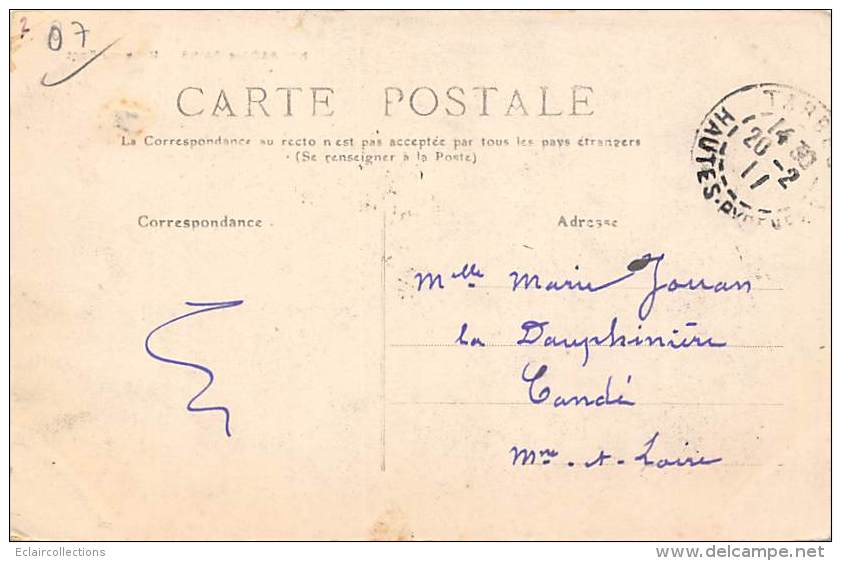 07
CARTE POSTALE
La Correspondance au recto n'est pas acceptée par tous les pays étrangers
(Se renseigner à la Poste)
TARBES
14 30
20 -2
11
HAUTES-PYRENEES
Correspondance
Adresse
Melle Marie Jouan
la Dauphinière
Candé
Mne-et-Loire
Eclaircollections
www.delcampe.net